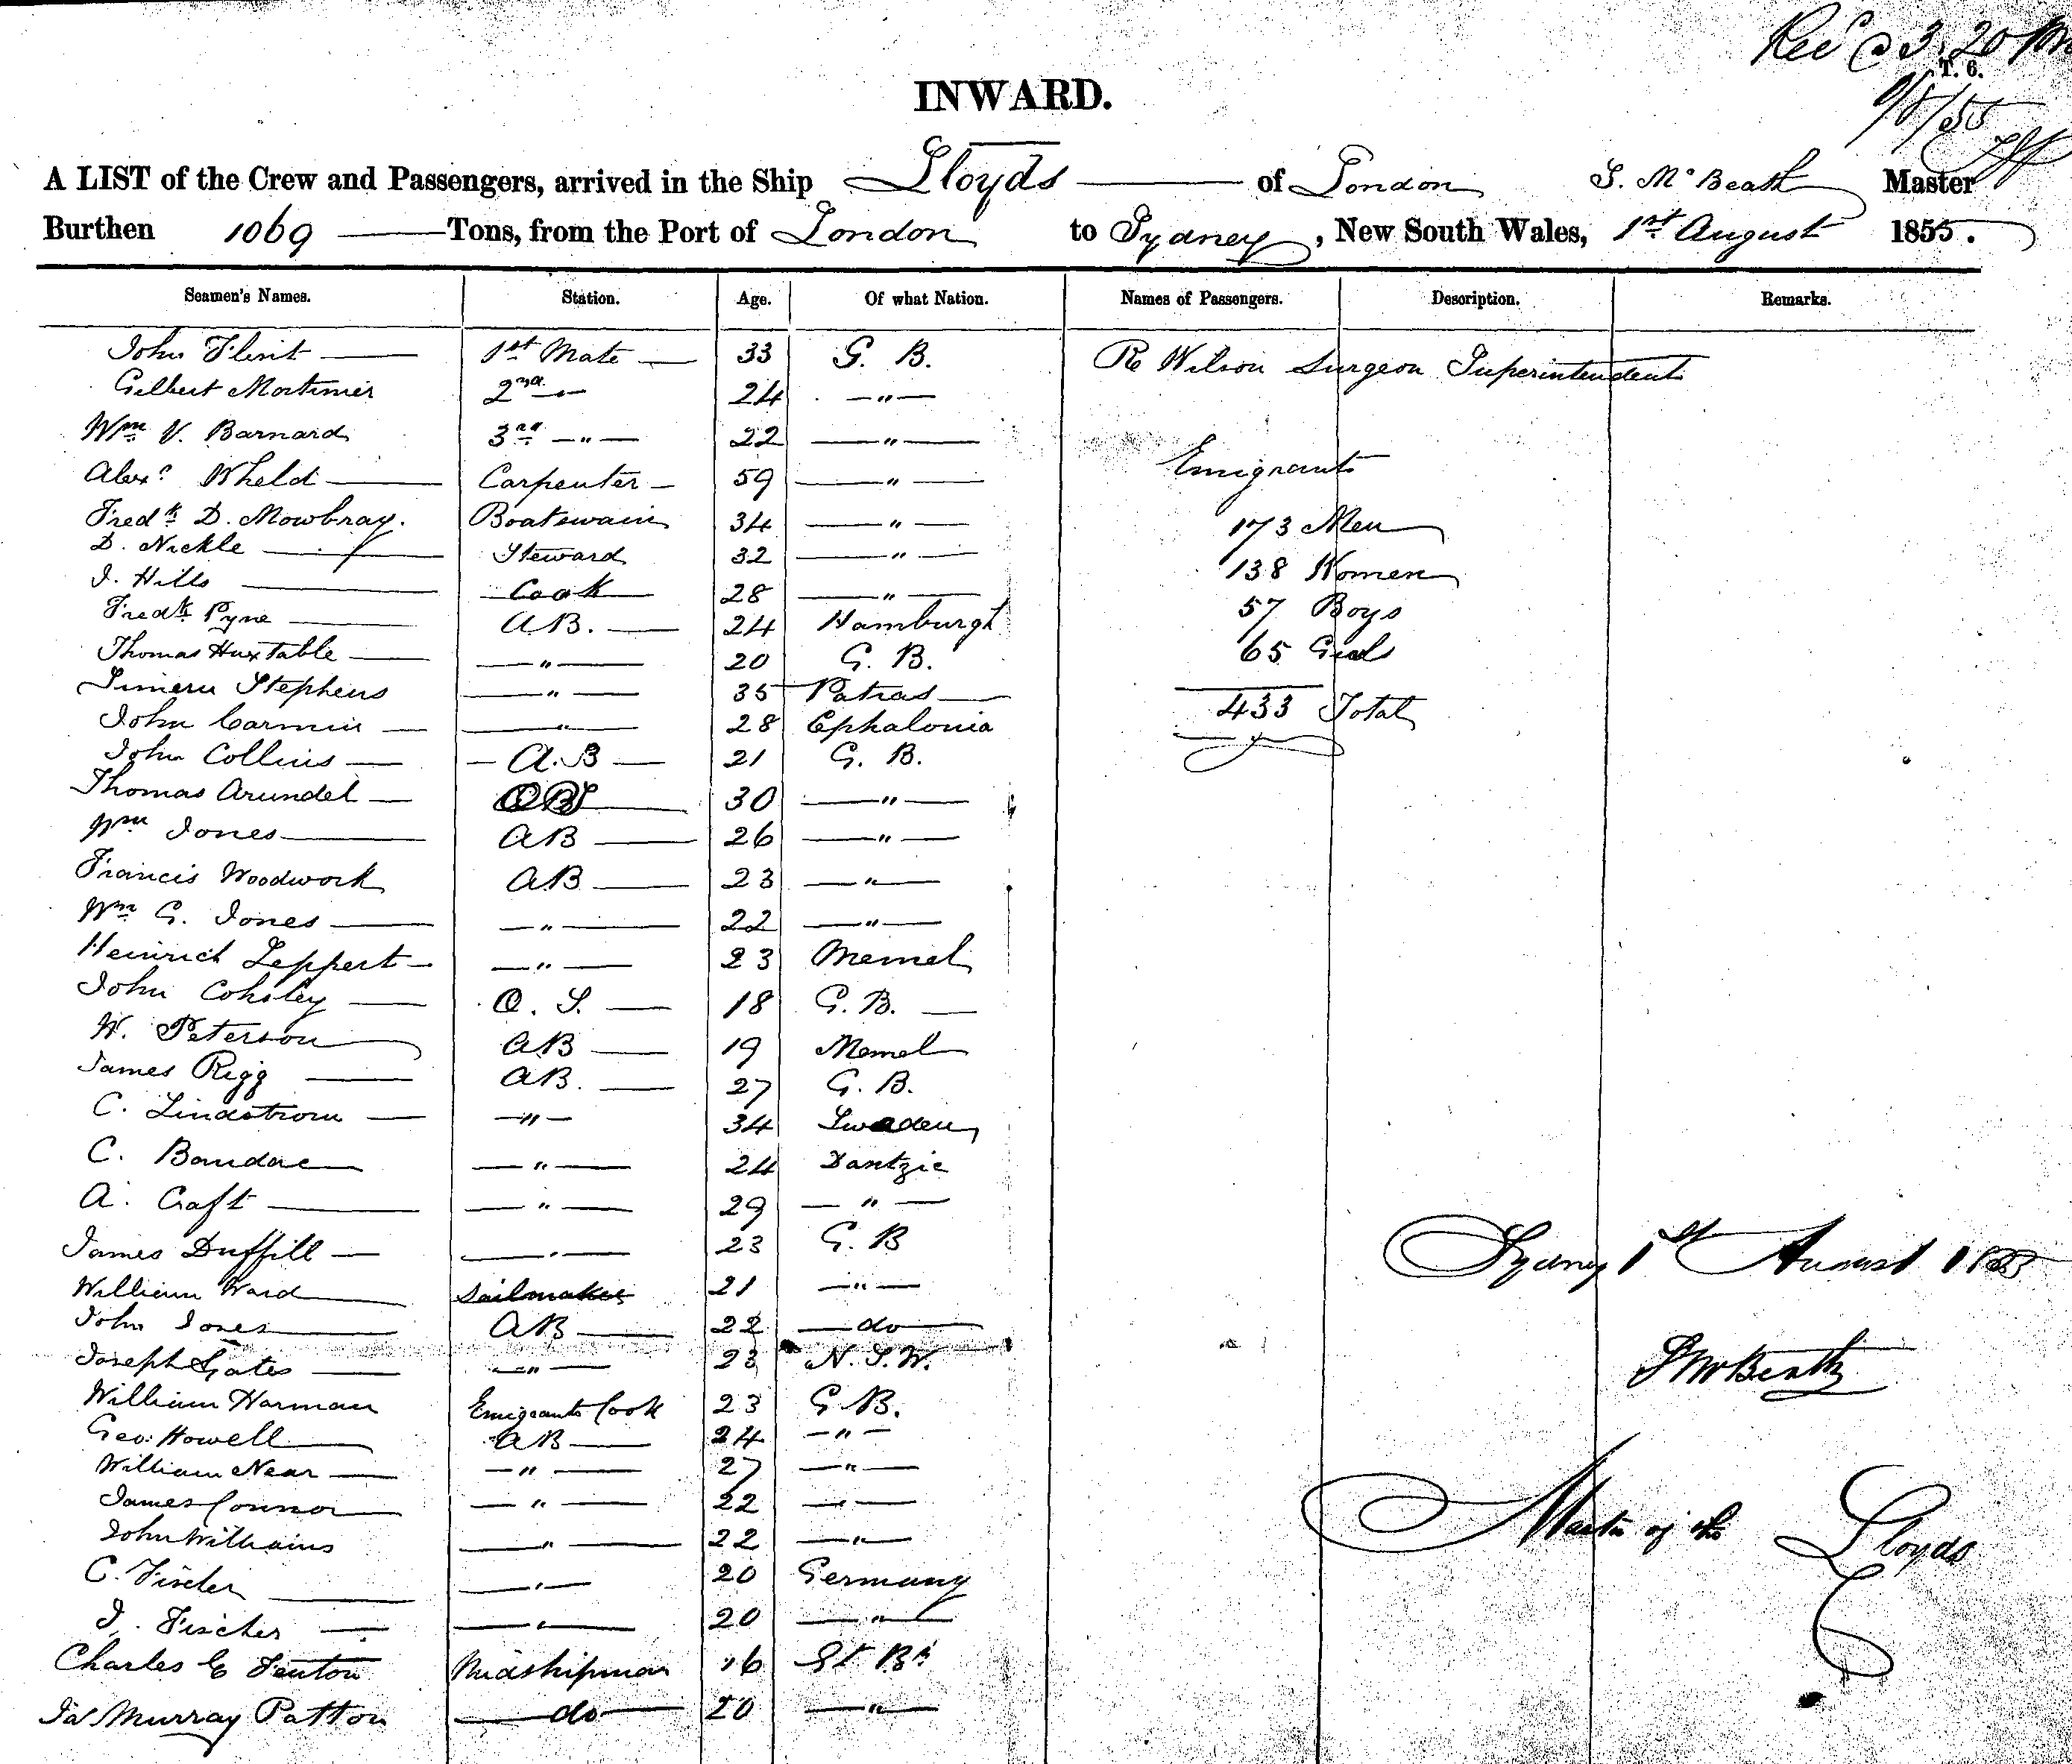 Recd @ 3.20 PM
T. 6.
1/8/55
INWARD.
A LIST of the Crew and Passengers, arrived in the Ship Lloyds of London S. McBeath Master
Burthen 1069 Tons, from the Port of London to Sydney, New South Wales, 1st August 1855.
Seamen's Names. Station. Age. Of what Nation. Names of Passengers. Description. Remarks.
John Flint 1st Mate 33 G. B. Wilson Surgeon Superintendent
Gilbert Mortimer 2nd " 24 "
Wm V. Barnard 3rd " 22 "
Alexr Wheld Carpenter 59 " Emigrants
Fredk D. Mowbray. Boatswain 34 " 173 Men
D. Nickle Steward 32 " 138 Women
J. Hills Cook 28 " 57 Boys
Fredk Pyne A.B. 24 Hamburgh 65 Girls
Thomas Huxtable " 20 G. B.
Stephens " 35 Patras 433 Total
John Carmin " 28 Cephalonia
John Collins A.B 21 G. B.
Thomas Arundel 30 "
Wm Jones AB 26 "
Francis Woodwork AB 23 "
Wm G. Jones " 22 "
Heinrich Leppert " 23 Memel
John Cohsley O. S. 18 G. B.
W. Peterson AB 19 Memel
James Rigg AB. 27 G. B.
C. Lindstrom " 34 Sweden
C. Baudac " 24 Dantzic
A. Craft " 29 "
James Duffill " 23 G. B
William Ward Sailmaker 21 " Sydney 1st August 1855
John Jones AB 22 do
Joseph Gates " 23 N. S. W. S McBeath
William Harman Emigrants Cook 23 G. B.
Geo. Howell AB 24 "
William Near " 27 "
James Connor " 22 "
John Williams " 22 " Master of the Lloyds
C. Fischer " 20 Germany
J. Fischer " 20 "
Charles E Fenton Midshipman 16 Gt Bn
Jas Murray Patton do 20 "